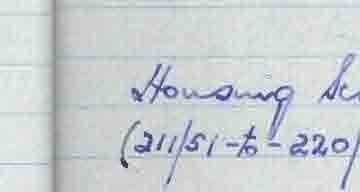 Housing Sc
(211/51-to-220/